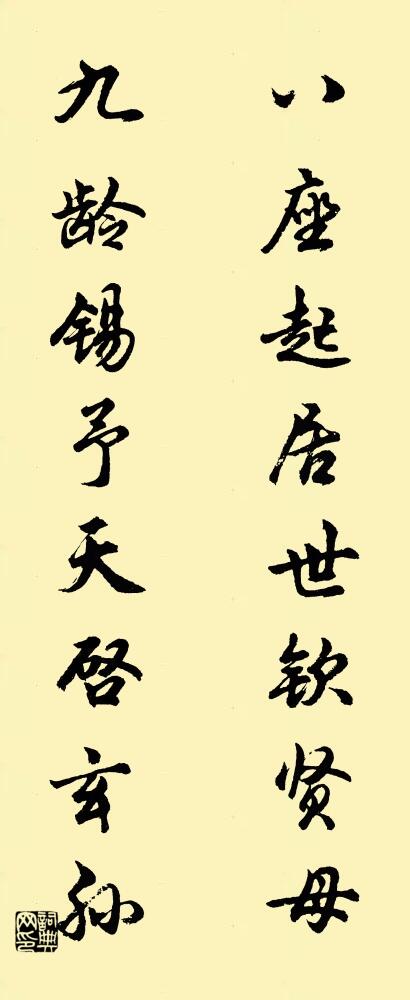 八座起居世钦贤母
九龄锡予天启玄孙
词典网印